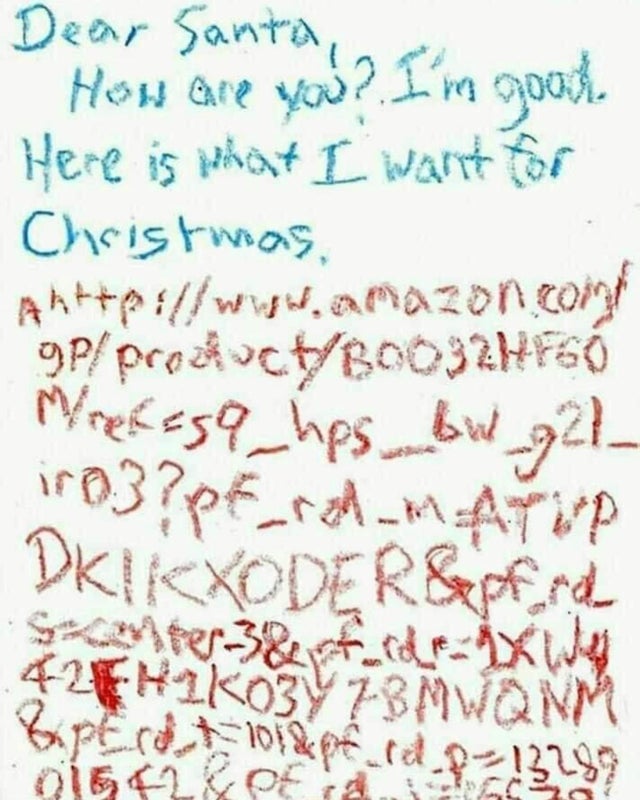 Dear Santa,
How are you? I'm good.
Here is what I want for
Christmas.
Ahttp://www.amazon.com/
gp/product/B0032HF60
M/ref=s9_hps_bw_g21_
ir03?pf_rd_m=ATVP
DKIKX0DER&pf_rd
s=center-3&pf_rd_r=1XWY
42FH1K03Y7BMWQNM
&pf_rd_t=101&pf_rd_p=13289
01542&pf_rd